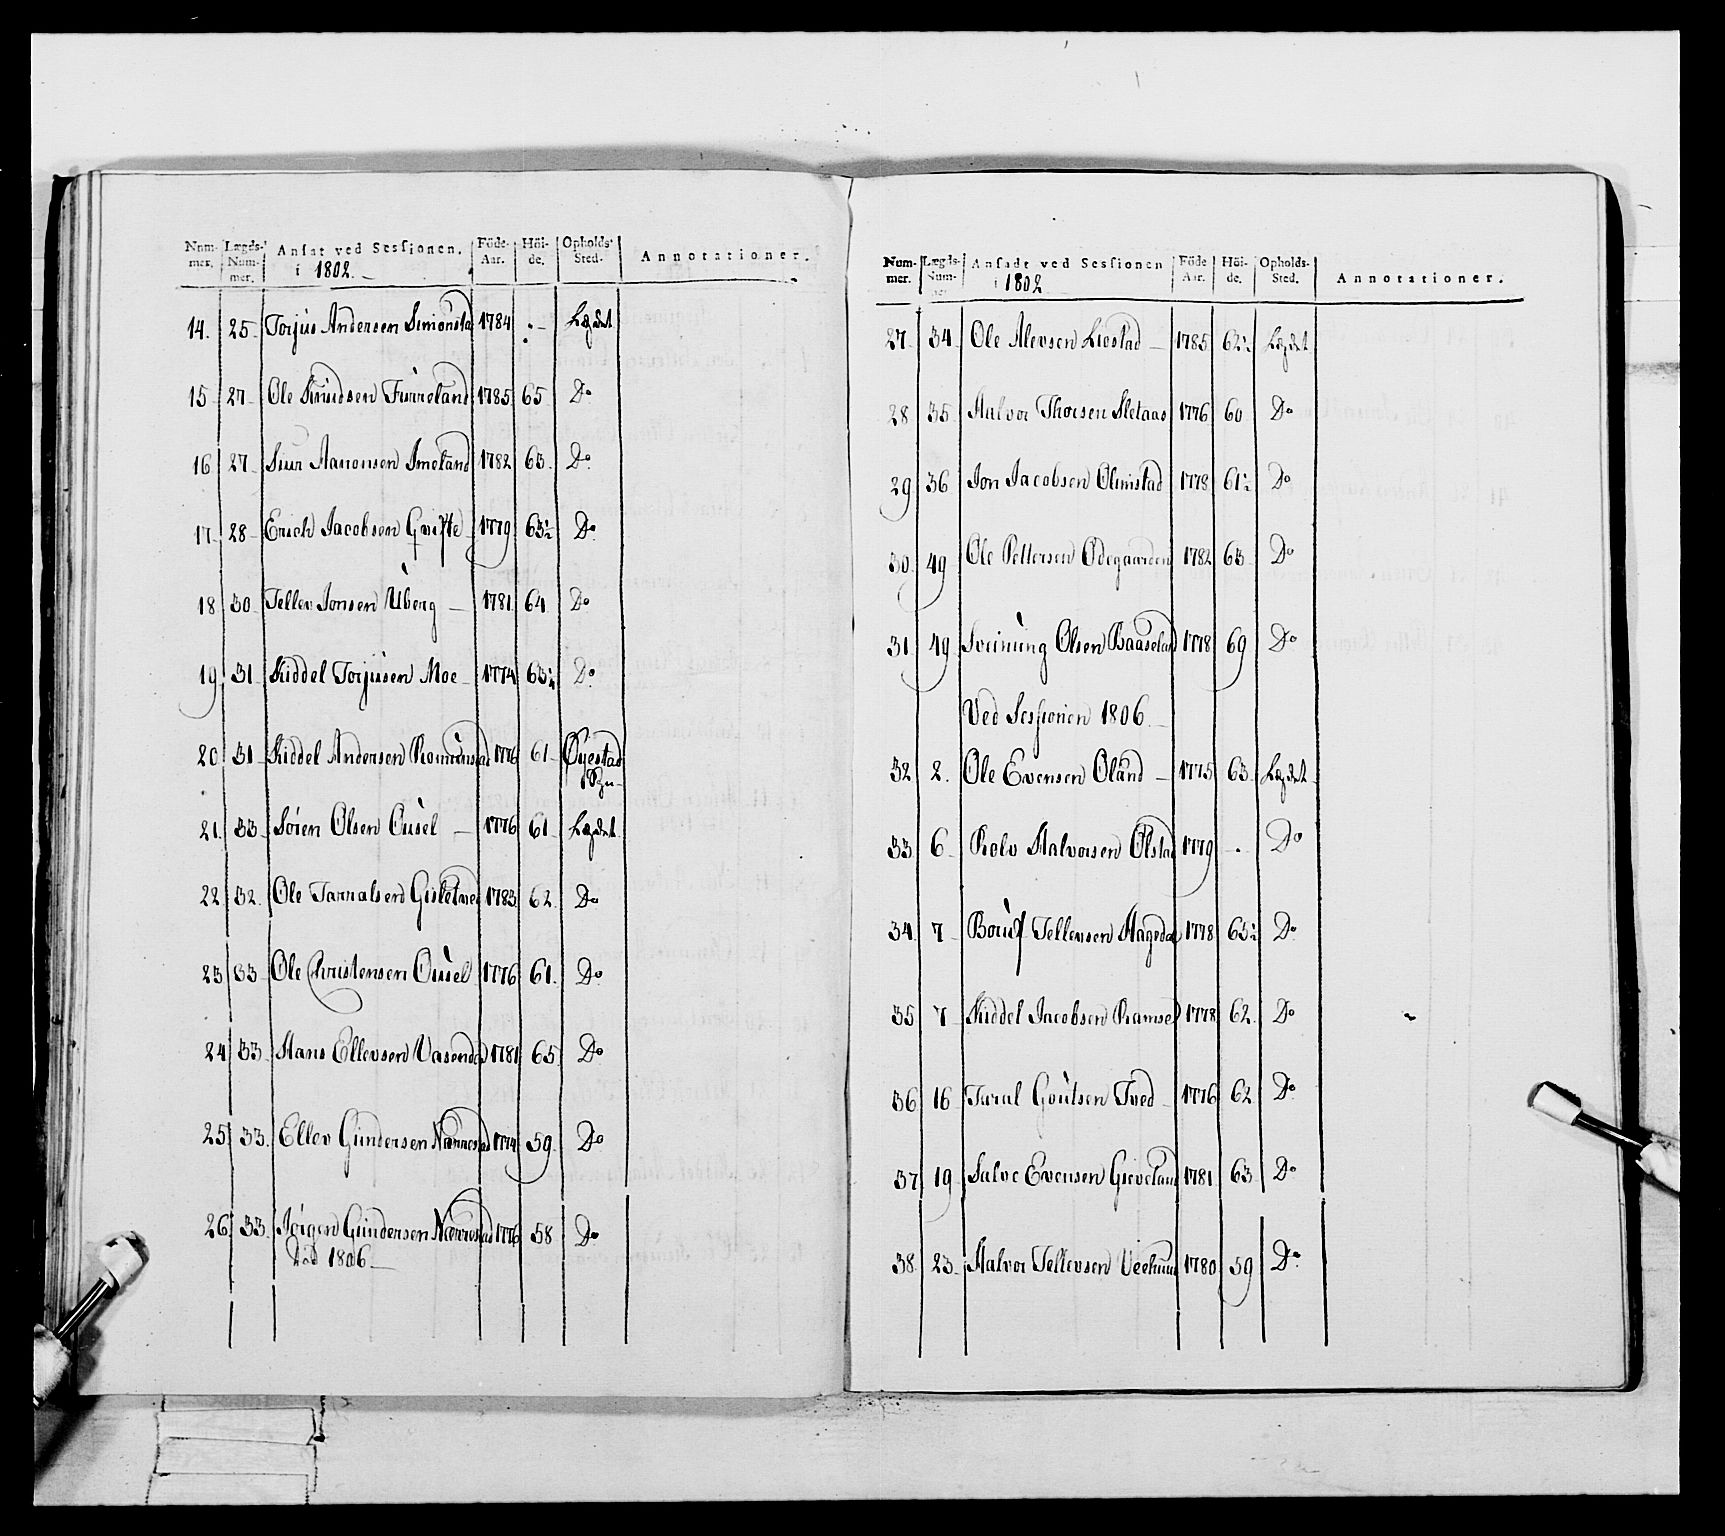 Num-mer. Lægds-Num-mer. Ansat ved Sessionen. i 1802. Föde-Aar. Höi-de. Opholds-Sted. Annotationer.
14. 25 Torjus Andersen Simonsta 1784 . Lægdet
15 27 Ole Knudsen Furreland 1785 65 Do
16 27 Siur Aanonsen Smeland 1782 63. Do
17 28 Erich Jacobsen 1779 63½ Do
18 30 Tellev Jonsen Uberg 1781 64 Do
19 31 Kiddel Torjusen Moe 1774 63¼ Do
20 31 Kiddel Andersen 1776 61 Øyestad
Sogn
21. 33 Sören Olsen Ousel 1776 61 Lægdet
22 32. Ole Tarralsen 1783 62. Do
23 33 Ole Christensen Ousel 1776 61. Do
24 33 Hans Ellevsen Vasenden 1781 65 Do
25 33. Ellev Gundersen Nærrestad 1774 59. Do
26 33. Jörgen Gundersen Nærrestad 1776 58 Do
Död 1806
Num-mer. Lægds-Num-mer Ansadt ved Sessionen i 1802 Föde Aar. Höi-de. Opholds-Sted. Annotationer.
27 34 Ole Alevsen Liestad 1785 62½ Lægdet
28 35 Halvor Thorsen Sletaas 1776 60 Do
29 36 Jon Jacobsen Olimstad 1778 61½ Do
30. 49 Ole Pettersen Ødegaarden 1782 63 Do
31. 49 Svenning Olsen Baaseland 1778 69 Do
Ved Sessionen 1806.
32 2. Ole Evensen Oland 1775 63 Lægdet
33 6 Rolv Halvorsen Ølstad 1779 . Do
34. 7 Tellevsen Hagedal 1778 63½ Do
35 7 Kiddel Jacobsen Ramse 1778 62. Do
36 16 Taral Goutsen Tved 1776 62 Do
37 19 Salve Evensen Greveland 1781 63 Do
38 23 Halvor Tellevsen 1780 59 Do